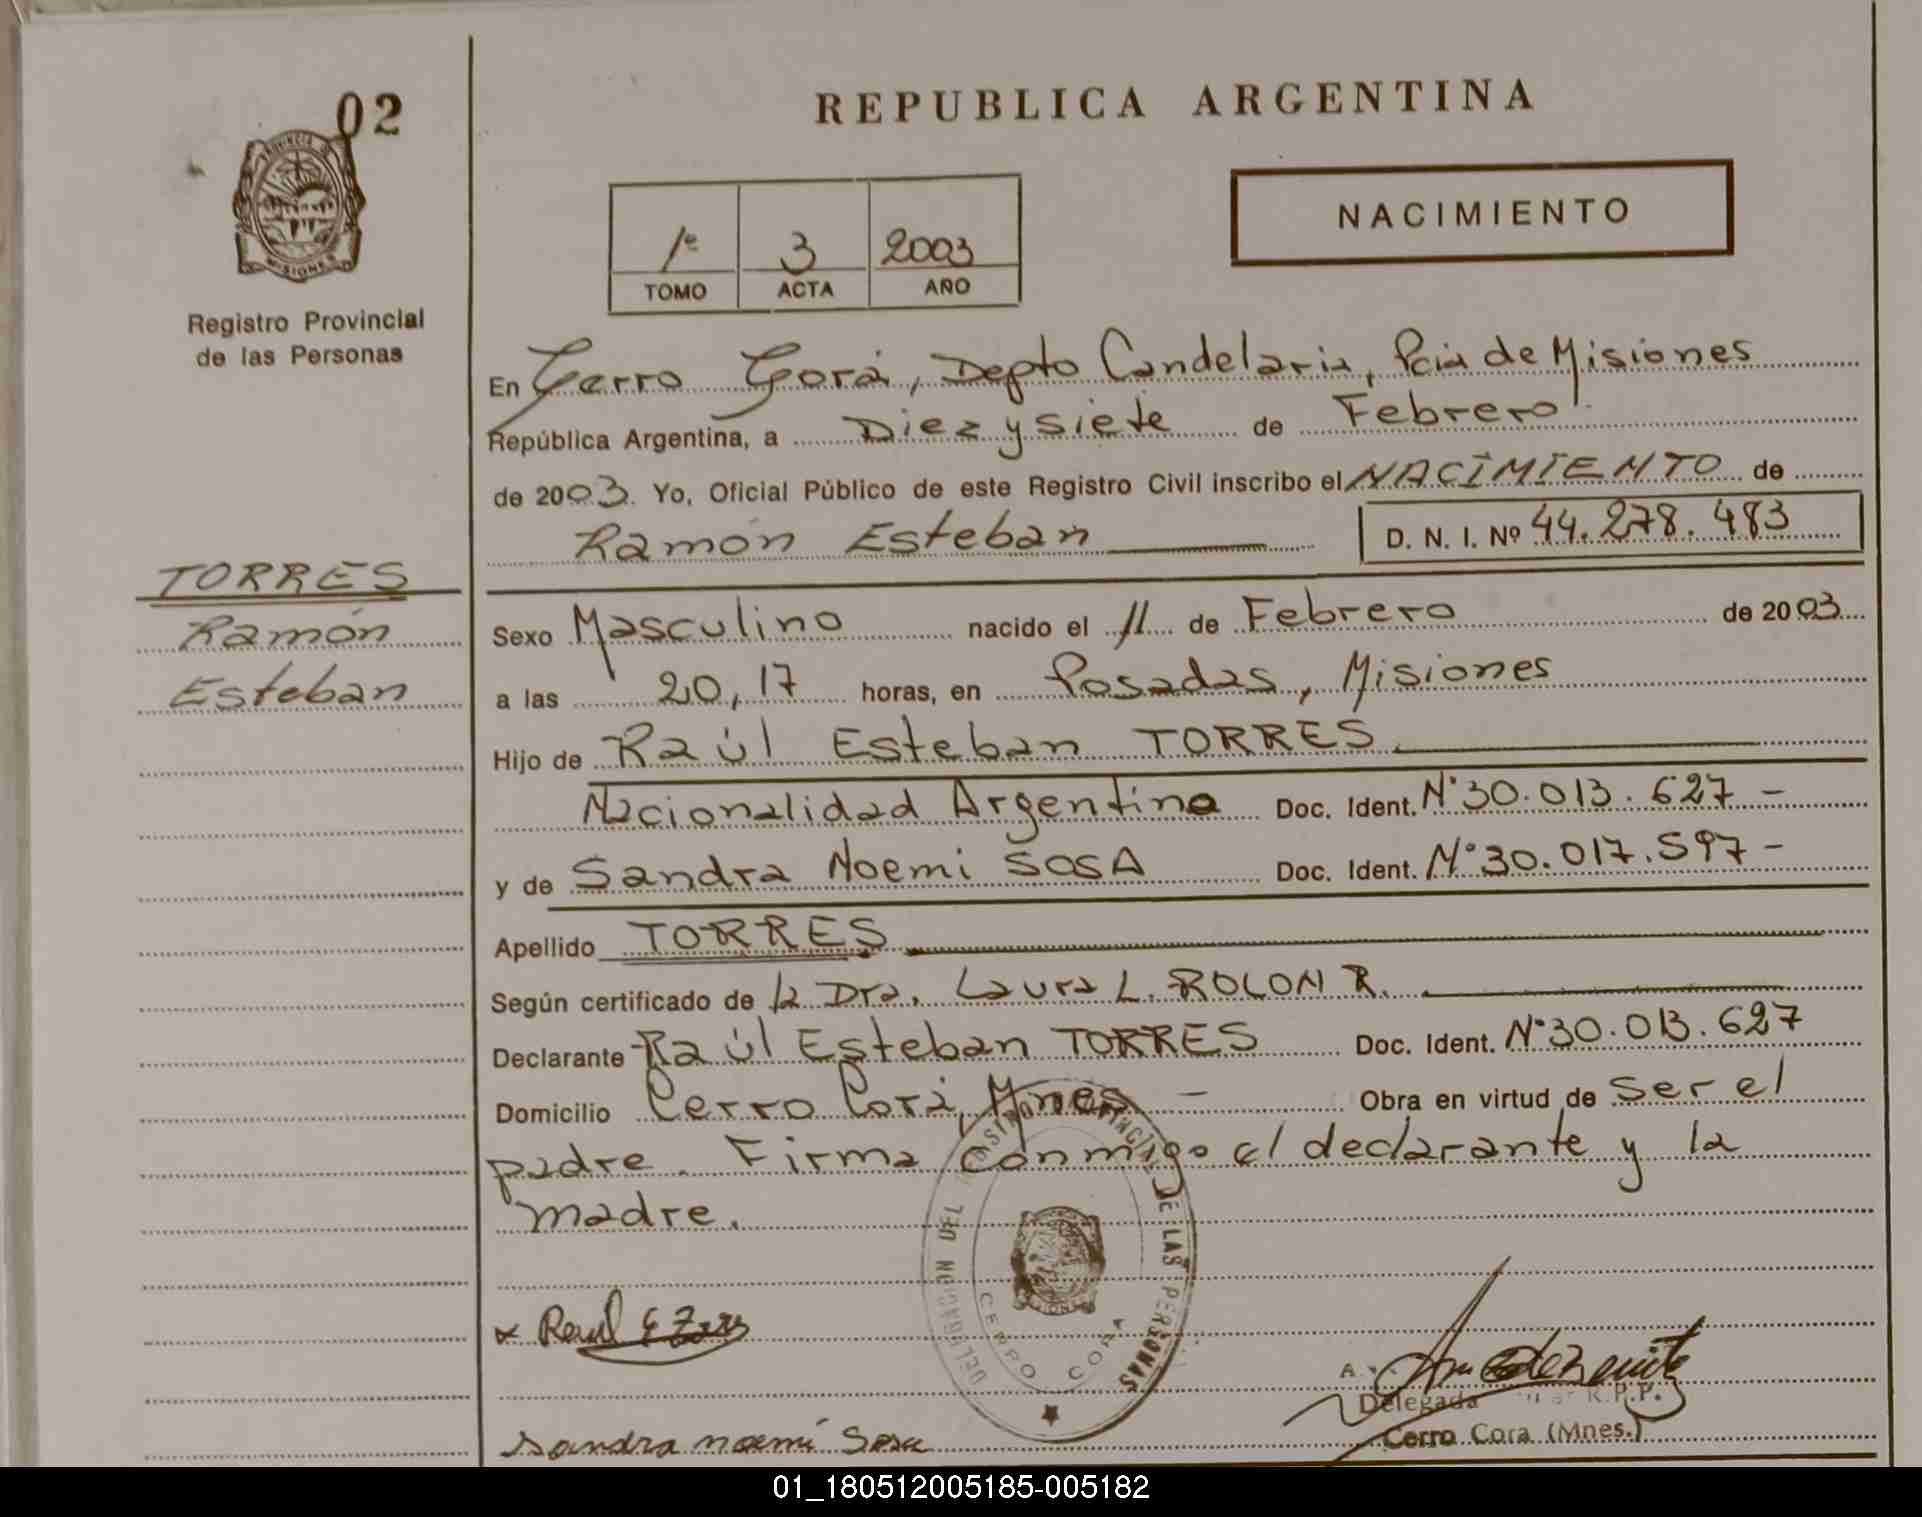 02
REPUBLICA ARGENTINA
PROVINCIA DE
MISIONES
Registro Provincial
de las Personas
NACIMIENTO
1º 3 2003
TOMO ACTA AÑO
En Cerro Corá, Depto Candelaria, Pcia de Misiones
República Argentina, a Diez y siete de Febrero
de 2003. Yo, Oficial Público de este Registro Civil inscribo el NACIMIENTO de
Ramón Esteban D. N. I. Nº 44.278.483
TORRES
Ramón
Esteban
Sexo Masculino nacido el 11 de Febrero de 2003
a las 20,17 horas, en Posadas, Misiones
Hijo de Raúl Esteban TORRES
Nacionalidad Argentina Doc. Ident. Nº 30.013.627 -
y de Sandra Noemi SOSA Doc. Ident. Nº 30.017.597 -
Apellido TORRES
Según certificado de la Dra. Laura L. ROLON R.
Declarante Raúl Esteban TORRES Doc. Ident. Nº 30.013.627
Domicilio Cerro Corá, Mnes - Obra en virtud de ser el
padre. Firma conmigo el declarante y la
madre.
DELEGACION DEL REGISTRO PROVINCIAL DE LAS PERSONAS
CERRO CORA
Raul E
Delegada R.P.P.
Cerro Cora (Mnes.)
Sandra noemí Sosa
01_180512005185-005182